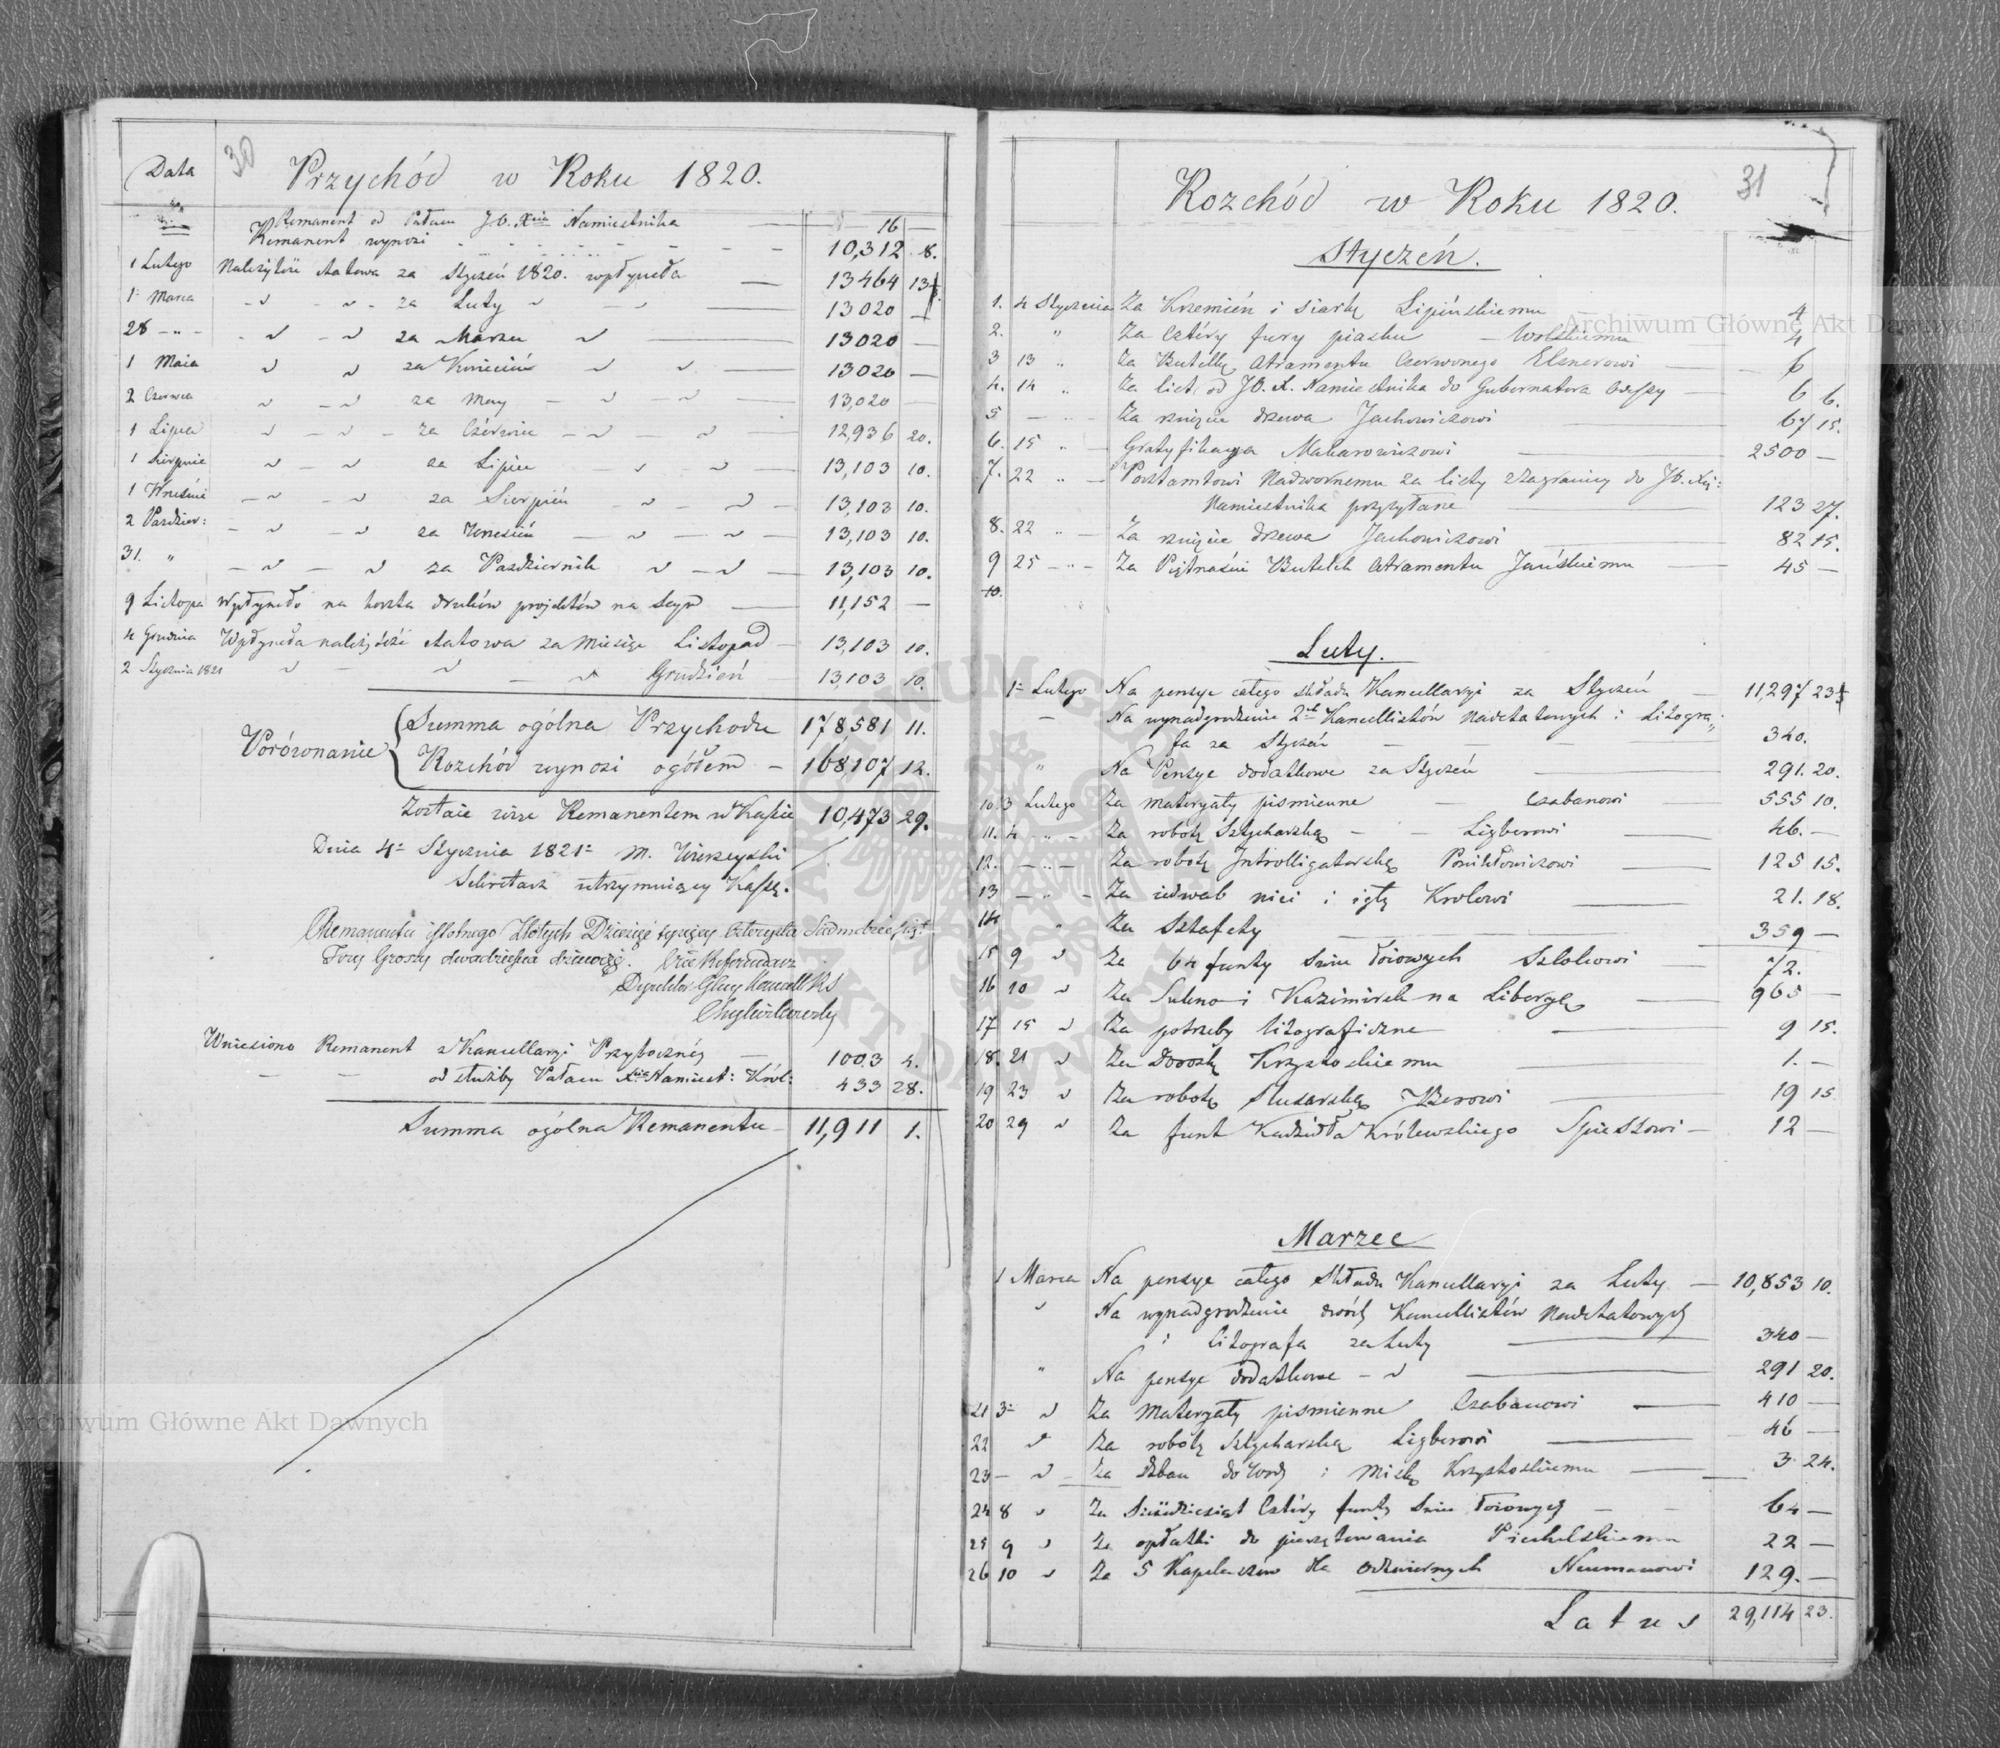 30
Data
Przychód w Roku 1820.
Remanent od Pałacu J.O. Xcia Namiestnika — 16 —
Remanent wynosi 10,312 8.
1 Lutego Należytość etatowa za Styczeń 1820. wpłynęła — 13464 13
1 Marca " " za Luty " 13020 —
28 " " " za Marzec " 13020 —
1 Maia " " za Kwiecień " " 13020 —
2 Czerwca " " za May " " 13,020 —
1 Lipca " " za Czérwiec " " 12,936 20.
1 Sierpnia " " za Lipiec " " 13,103 10.
1 Wrześnie " " za Sierpień " " 13,103 10.
2 Pazdzier: " " za Wrzesień " " 13,103 10.
31. " " " za Pazdziernik " " 13,103 10.
9 Listopa Wpłynęło na koszta druków projektów na Seym — 11,152 —
4 Grudnia Wpłynęła należytość etatowa za Miesiąc Listopad — 13,103 10.
2 Stycznia 1821 " " " Grudzień 13,103 10.
Porównanie
Summa ogólna Przychodu 178,581 11.
Rozchód wynosi ogółem — 168,107 12.
Zostaie więc Remanentem w Kassie 10,473 29.
Dnia 4 Stycznia 1821 M.
Sekretarz utrzymuiący Kassę.
Remanentu istotnego Złotych Dziesięć tysięcy Czterysta Siedmdziesiąt
Trzy Groszy dwadzieścia dziewięć. Vice Referendarz
Dyrektor
Wniesiono Remanent z Kancellaryi Przybocznéy — 1003 4.
— — od służby Pałacu Xcia Namiest: Król: 433 28.
Summa ogólna Remanentu — 11,911 1.
31
Rozchód w Roku 1820.
Styczeń.
1. 4 Stycznia Za Krzemień i siarkę Lipińskiemu — 4
2. " Za cztéry fury piasku — Wolskiemu 4
3 13 " Za Butelkę Atramentu Czerwonego Elsnerowi — 6
4. 14 " Za list od J.O. X. Namiestnika do Gubernatora — 6 6.
5 — " — Za rznięcie drzewa Jachowiczowi — 67 15.
6. 15 " — Gratyfikacya Makarowiczowi — 2500 —
7. 22 " — Pocztamtowi Nadwornemu za listy z zagranicy do J.O. Xię:
Namiestnika przysyłane — 123 27.
8. 22 " — Za rznięcie drzewa Jachowiczowi — 82 15.
9 25 — " — Za Piętnaście Butelek Atramentu Jańskiemu — 45 —
10.
Luty.
1 Lutego Na pensye całego składu Kancellaryi za Styczeń — 11,297 23
— Na wynadgrodzenie 2ch Kancellistów Nadetatowych i Litogra
fa za Styczeń — 340.
" Na Pensye dodatkowe za Styczeń — 291. 20.
10. 3 Lutego Za materyały piśmienne — Czabanowi — 555 10.
11. 4 " — Za robotę Sztycharską — Ligberowi — 46. —
12. — " — Za robotę Introlligatorską — 125 15.
13 — " — Za iedwab nici i igłę Krolowi — 21. 18.
14 " Za Sztafety — 359 —
15 9 " Za 64 funty Swiec łoiowych — 72.
16 10 " Za Sukno i Kazimirek na Liberyę — 965 —
17 15 " Za potrzeby litograficzne — 9 15.
18. 21 " Za Dorożkę Krzyskoskiemu — 1. —
19 23 " Za robotę slusarską Berowi — 19 15
20 29 " Za funt Kadzidła Królewskiego Spieszowi — 12 —
Marzec
1 Marca Na pensye całego składu Kancellaryi za Luty — 10,853 10.
" Na wynadgrodzenie dwóch Kancellistów Nadetatowych
i Litografa za Luty — 340 —
" Na pensye dodatkowe — " — 291 20.
21 3 " Za Materyały piśmienne Czabanowi — 410 —
22 " Za robotę Sztycharską Ligberowi — 46 —
23 — " — Za Dzban do wody i Miskę Krzyskoskiemu — 3 24.
24 8 " Za Sześdziesiąt Cztéry funty Swiec łoiowych — 64 —
25 9 " Za opłatki do pieczętowania Piekelskiemu 22 —
26 10 " Za 5 Kapeluszów dla odzwiernych Neumanowi 129. —
Latus 29,114 23.
Archiwum Główne Akt Dawnych
Archiwum Główne Akt Dawnych
ARCHIWUM GŁÓWNE AKT DAWNYCH